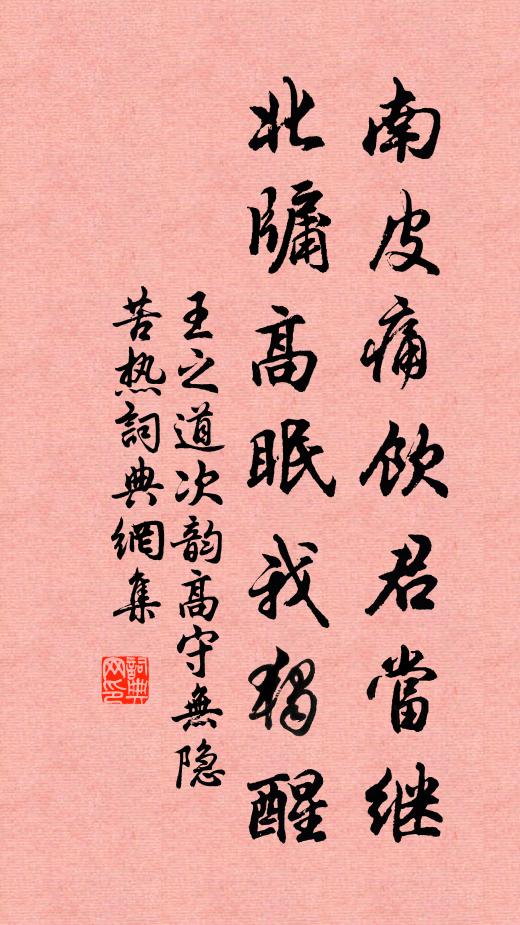 南皮痛饮君當继
北牖高眠我獨醒
王之道次韵高守無隐
苦热詞典網集
詞典網印